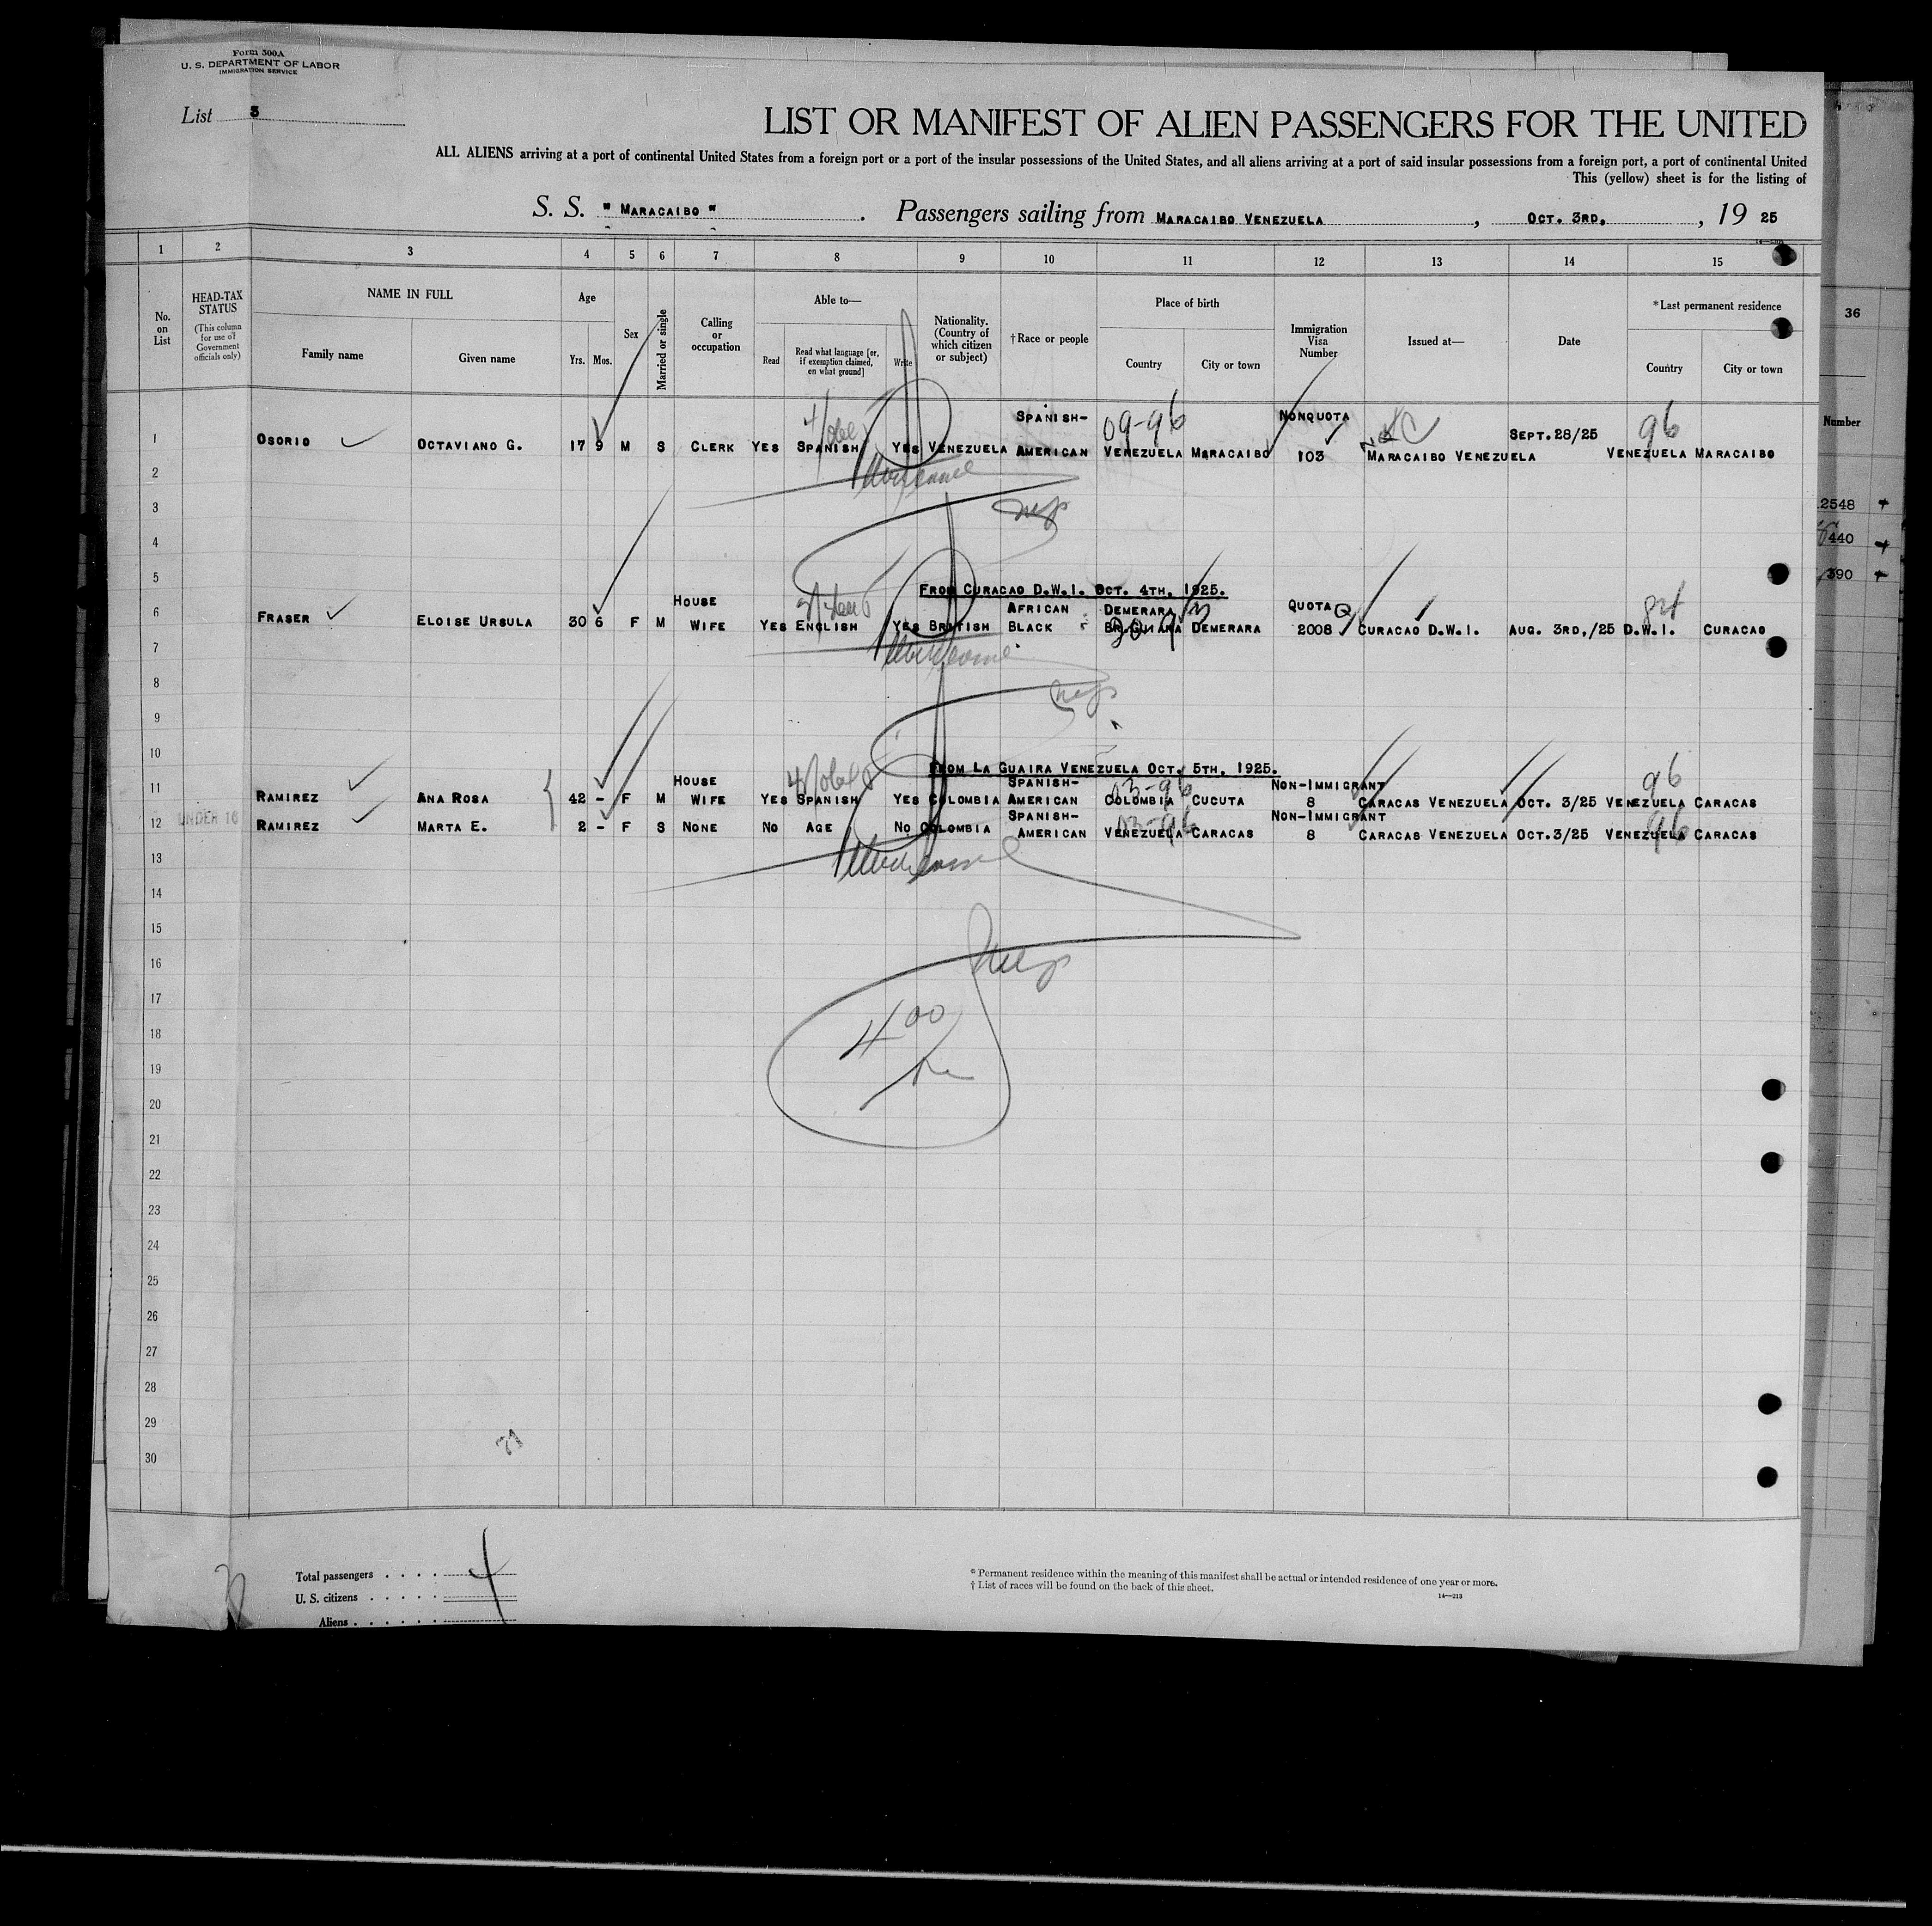 Form 500A
U. S. DEPARTMENT OF LABOR
IMMIGRATION SERVICE
List 3
LIST OR MANIFEST OF ALIEN PASSENGERS FOR THE UNITED
ALL ALIENS arriving at a port of continental United States from a foreign port or a port of the insular possessions of the United States, and all aliens arriving at a port of said insular possessions from a foreign port, a port of continental United
This (yellow) sheet is for the listing of
S. S. "MARACAIBO". Passengers sailing from MARACAIBO VENEZUELA, OCT. 3RD., 19 25
1 2 3 4 5 6 7 8 9 10 11 12 13 14 15
No. on List
HEAD-TAX STATUS (This column for use of Government officials only)
NAME IN FULL
Family name Given name
Age
Yrs. Mos.
Sex
Married or single
Calling or occupation
Able to—
Read
Read what language [or, if exemption claimed, on what ground]
Write
Nationality. (Country of which citizen or subject)
†Race or people
Place of birth
Country City or town
Immigration Visa Number
Issued at—
Date
*Last permanent residence
Country City or town
36
Number
SPANISH- 09-96 NONQUOTA 96
1 OSORIO OCTAVIANO G. 17 9 M S CLERK YES SPANISH YES VENEZUELA AMERICAN VENEZUELA MARACAIBO 103 MARACAIBO VENEZUELA SEPT.28/25 VENEZUELA MARACAIBO
2
3
2548
4
440
5
390
FROM CURACAO D.W.I. OCT. 4TH, 1925.
HOUSE AFRICAN DEMERARA QUOTA Q
6 FRASER ELOISE URSULA 30 6 F M WIFE YES ENGLISH YES BRITISH BLACK BR.GUIANA DEMERARA 2008 CURACAO D.W.I. AUG. 3RD,/25 D.W.I. CURACAO
7
8
9
10
FROM LA GUAIRA VENEZUELA OCT. 5TH, 1925.
HOUSE SPANISH- 03-96 NON-IMMIGRANT 96
11 RAMIREZ ANA ROSA 42 - F M WIFE YES SPANISH YES COLOMBIA AMERICAN COLOMBIA CUCUTA 8 CARACAS VENEZUELA OCT. 3/25 VENEZUELA CARACAS
SPANISH- 03-96 NON-IMMIGRANT 96
12 UNDER 16 RAMIREZ MARTA E. 2 - F S NONE NO AGE NO COLOMBIA AMERICAN VENEZUELA CARACAS 8 CARACAS VENEZUELA OCT.3/25 VENEZUELA CARACAS
13
14
15
16
17
18
4 00
19
20
21
22
23
24
25
26
27
28
29
30
Total passengers . . . . 4
U. S. citizens . . . . .
Aliens . . . . . .
* Permanent residence within the meaning of this manifest shall be actual or intended residence of one year or more.
† List of races will be found on the back of this sheet.
14—213